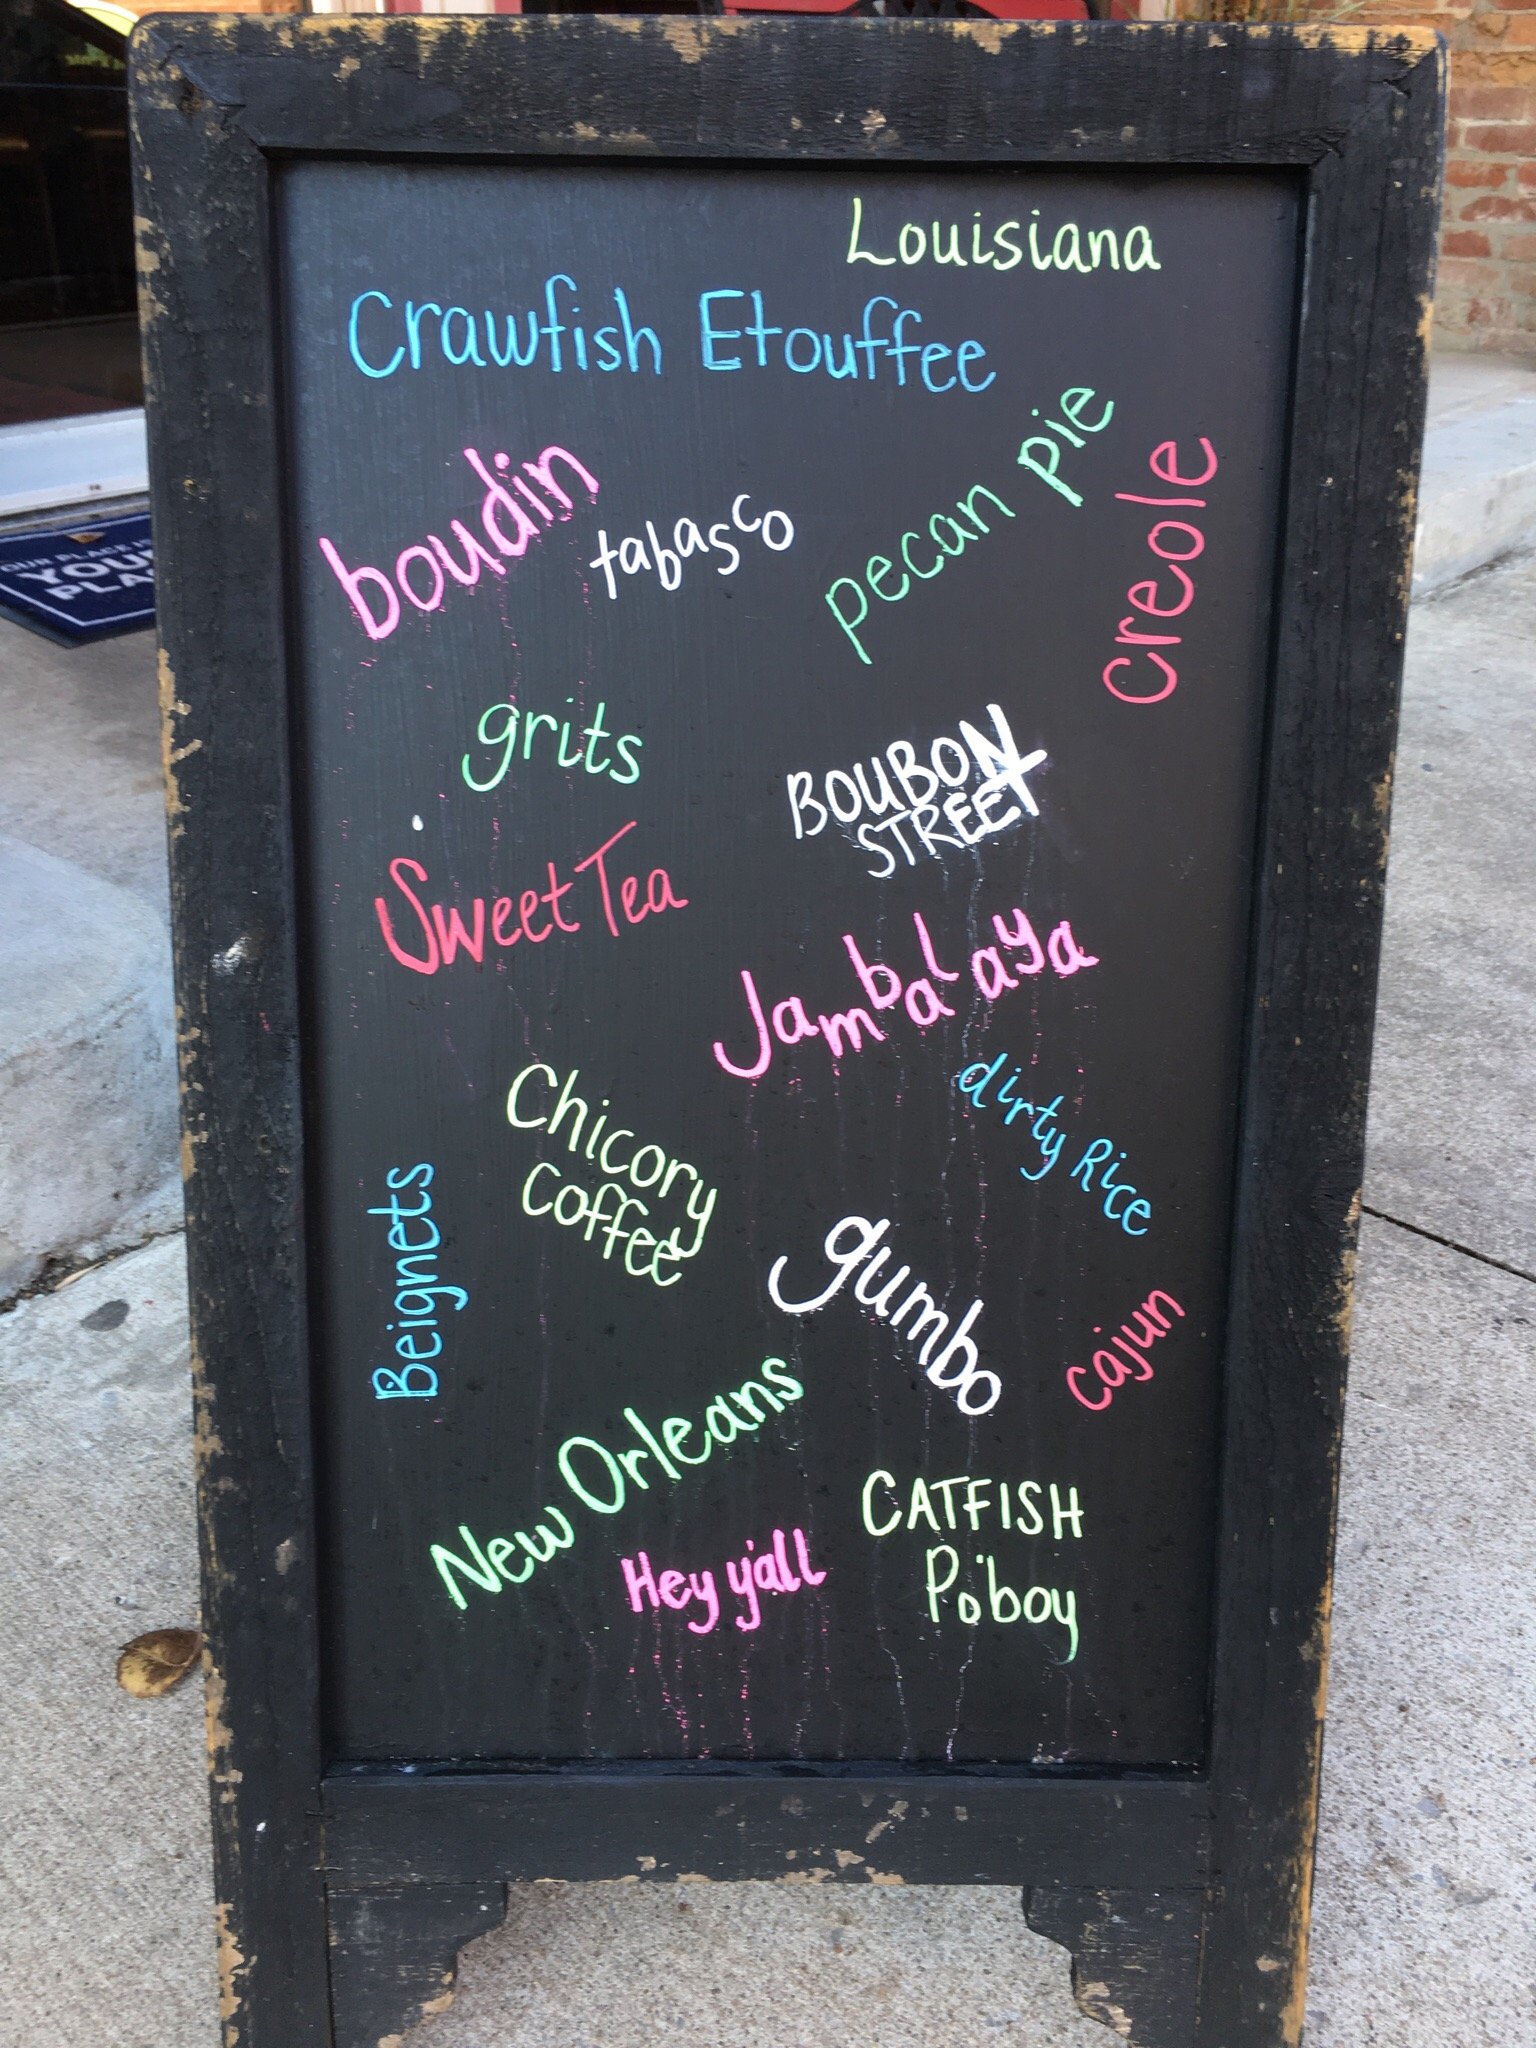 Louisiana
Crawfish Etouffee
boudin
tabasco
pecan pie
creole
grits
BOUBON
STREET
Sweet Tea
Jambalaya
dirty Rice
Chicory
Coffee
Beignets
gumbo
cajun
New Orleans
CATFISH
Po'boy
Hey y'all
YOUR